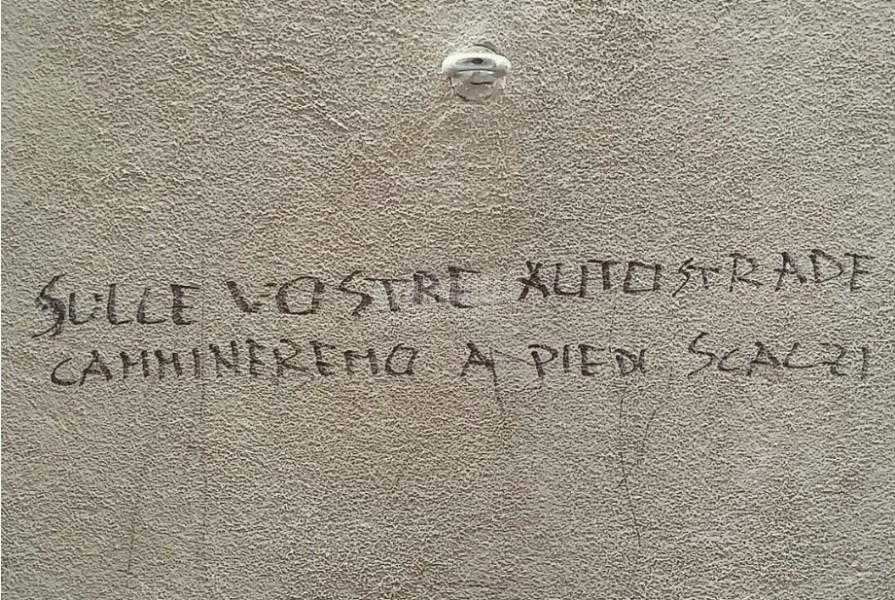 SULLE VOSTRE AUTOSTRADE
CAMMINEREMO A PIEDI SCALZI